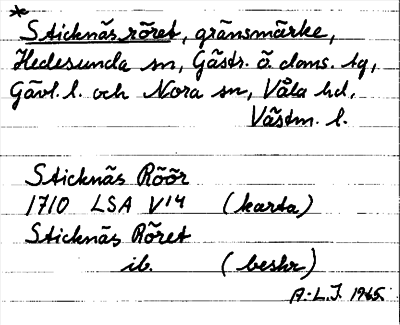 *
Sticknäs röret, gränsmärke,
Hedesunda sn, Gästr. ö. doms. tg,
Gävl. l. och Nora sn, Våla hd,
Västm. l.
Sticknäs Röör
1710 LSA V14 (karta)
Sticknäs Röret
ib. (beskr)
A.-L.J. 1965.